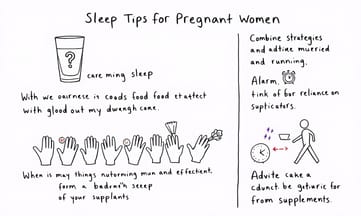 Sleep Tips for Pregnant Women
?
care ming sleep
With we oarnese is coads food food etaetect
with glood out my dwangh cane.
When is may things nutorming mun and effectent,
form a badrarh sceep
of your supplants
Combine strategies
and adtine murried
and running.
Alarm.
tink of for reliance on
supticators.
Advite cake a
cdunct be getwric for
from supplements.